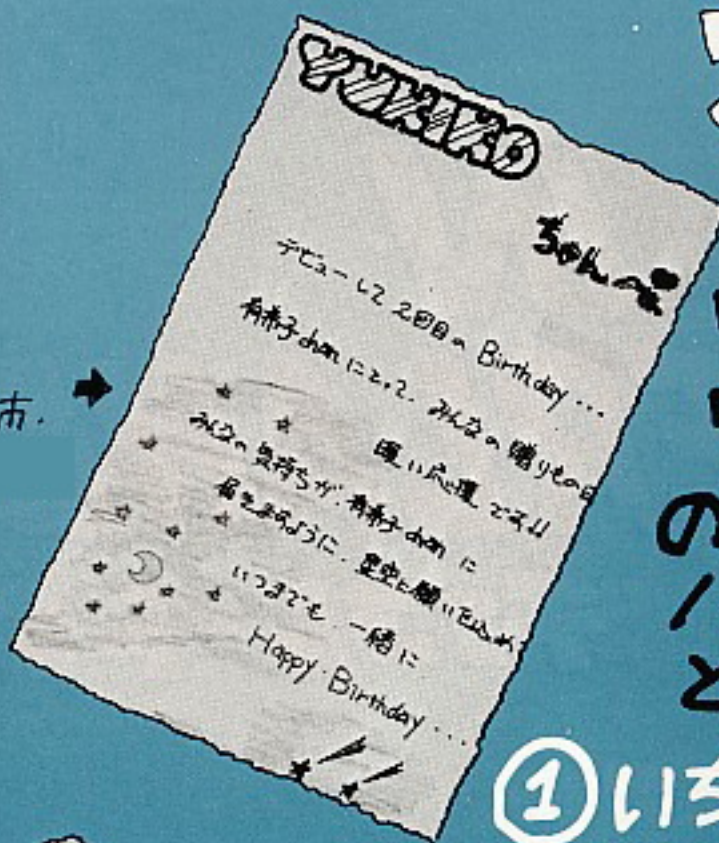 YUKIKO
ちゃんへ
デビューして2回目の Birthday...
有希子chanにとって、みんなの贈りものは
暖い応援です!!
みんなの気持ちが、有希子chanに
届きますように、星空に願いを込め
いつまでも 一緒に
Happy Birthday...
市.
の
①いち